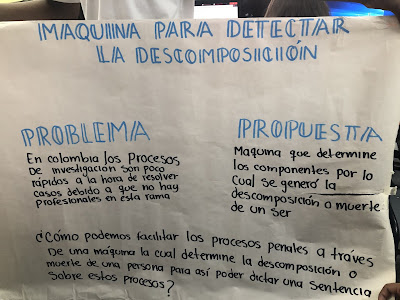 MAQUINA PARA DETECTAR
LA DESCOMPOSICIÓN
PROBLEMA
En colombia los Procesos
De investigación son poco
rápidos a la hora de resolver
casos debido a que no hay
profesionales en esta rama
PROPUESTA
Maquina que determine
los componentes por lo
cual se generó la
descomposición o muerte
de un ser
¿Cómo podemos facilitar los procesos penales a tráves
De una máquina la cual determine la descomposición o
muerte de una persona para así poder dictar una sentencia
sobre estos procesos?